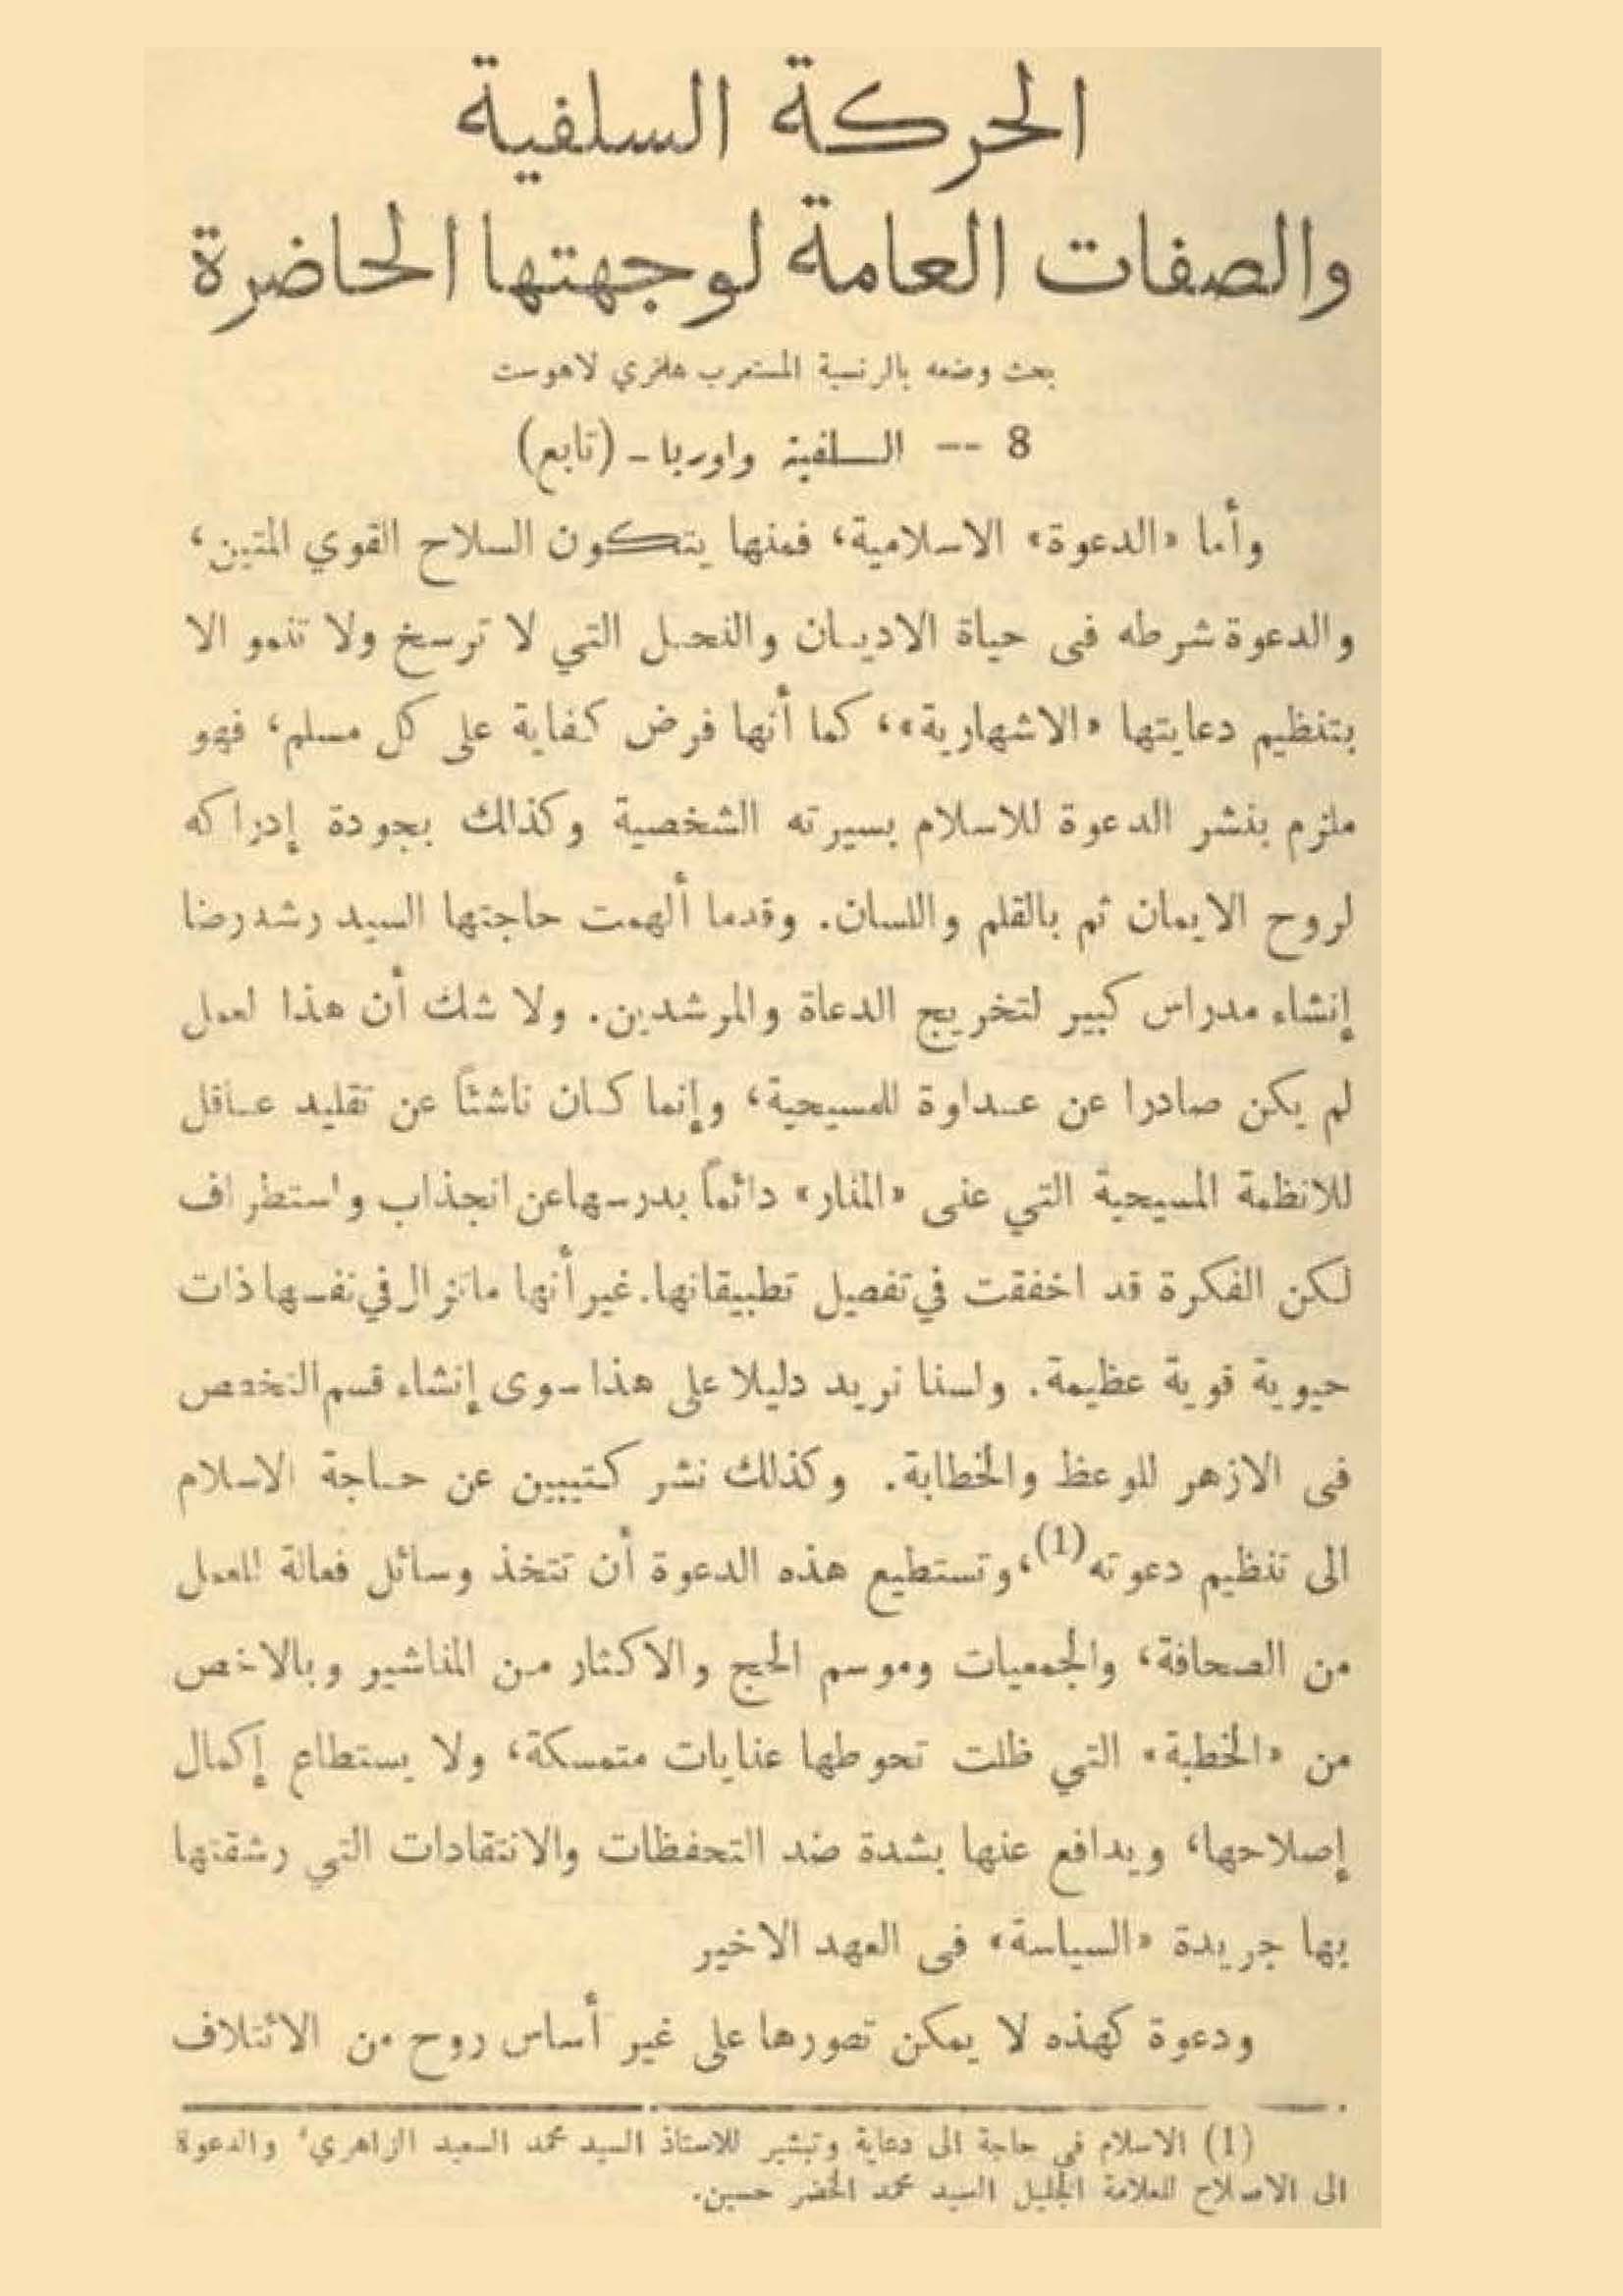 الحركة السلفية
والصفات العامة لوجهتها الحاضرة
بحث وضعه بالرنسية المستعرب هانري لاهوست
8 -- السلفية واوربا - (تابع)
وأما «الدعوة» الاسلامية، فمنها يتكون السلاح القوي المتين،
والدعوة شرطه فى حياة الاديان والنحل التي لا ترسخ ولا تنمو الا
بتنظيم دعايتها «الاشهارية»، كما أنها فرض كفاية على كل مسلم، فهو
ملزم بنشر الدعوة للاسلام بسيرته الشخصية وكذالك بجودة إدراكه
لروح الايمان ثم بالقلم واللسان. وقدما ألهمت حاجتها السيد رشد رضا
إنشاء مدراس كبير لتخريج الدعاة والمرشدين. ولا شك أن هذا لعمل
لم يكن صادرا عن عداوة للمسيحية، وإنما كان ناشئاً عن تقليد عاقل
للانظمة المسيحية التي عنى «المنار» دائماً بدرسها عن انجذاب واستظراف
لكن الفكرة قد اخفقت في تفصيل تطبيقاتها. غير أنها ما تزال في نفسها ذات
حيوية قوية عظيمة. ولسنا نريد دليلا على هذا سوى إنشاء قسم التخصص
فى الازهر للوعظ والخطابة. وكذلك نشر كتيبين عن حاجة الاسلام
الى تنظيم دعوته (1)، وتستطيع هذه الدعوة أن تتخذ وسائل فعالة للعمل
من الصحافة، والجمعيات وموسم الحج والاكثار من المناشير وبالاخص
من «الخطبة» التي ظلت تحوطها عنايات متمسكة، ولا يستطاع إكمال
إصلاحها، ويدافع عنها بشدة ضد التحفظات والانتقادات التي رشقتها
بها جريدة «السياسة» فى العهد الاخير
ودعوة كهذه لا يمكن تصورها على غير أساس روح من الائتلاف
(1) الاسلام في حاجة الى دعاية وتبشير للاستاذ السيد محمد السعيد الزاهري، والدعوة
الى الاصلاح للعلامة الجليل السيد محمد الخضر حسين.